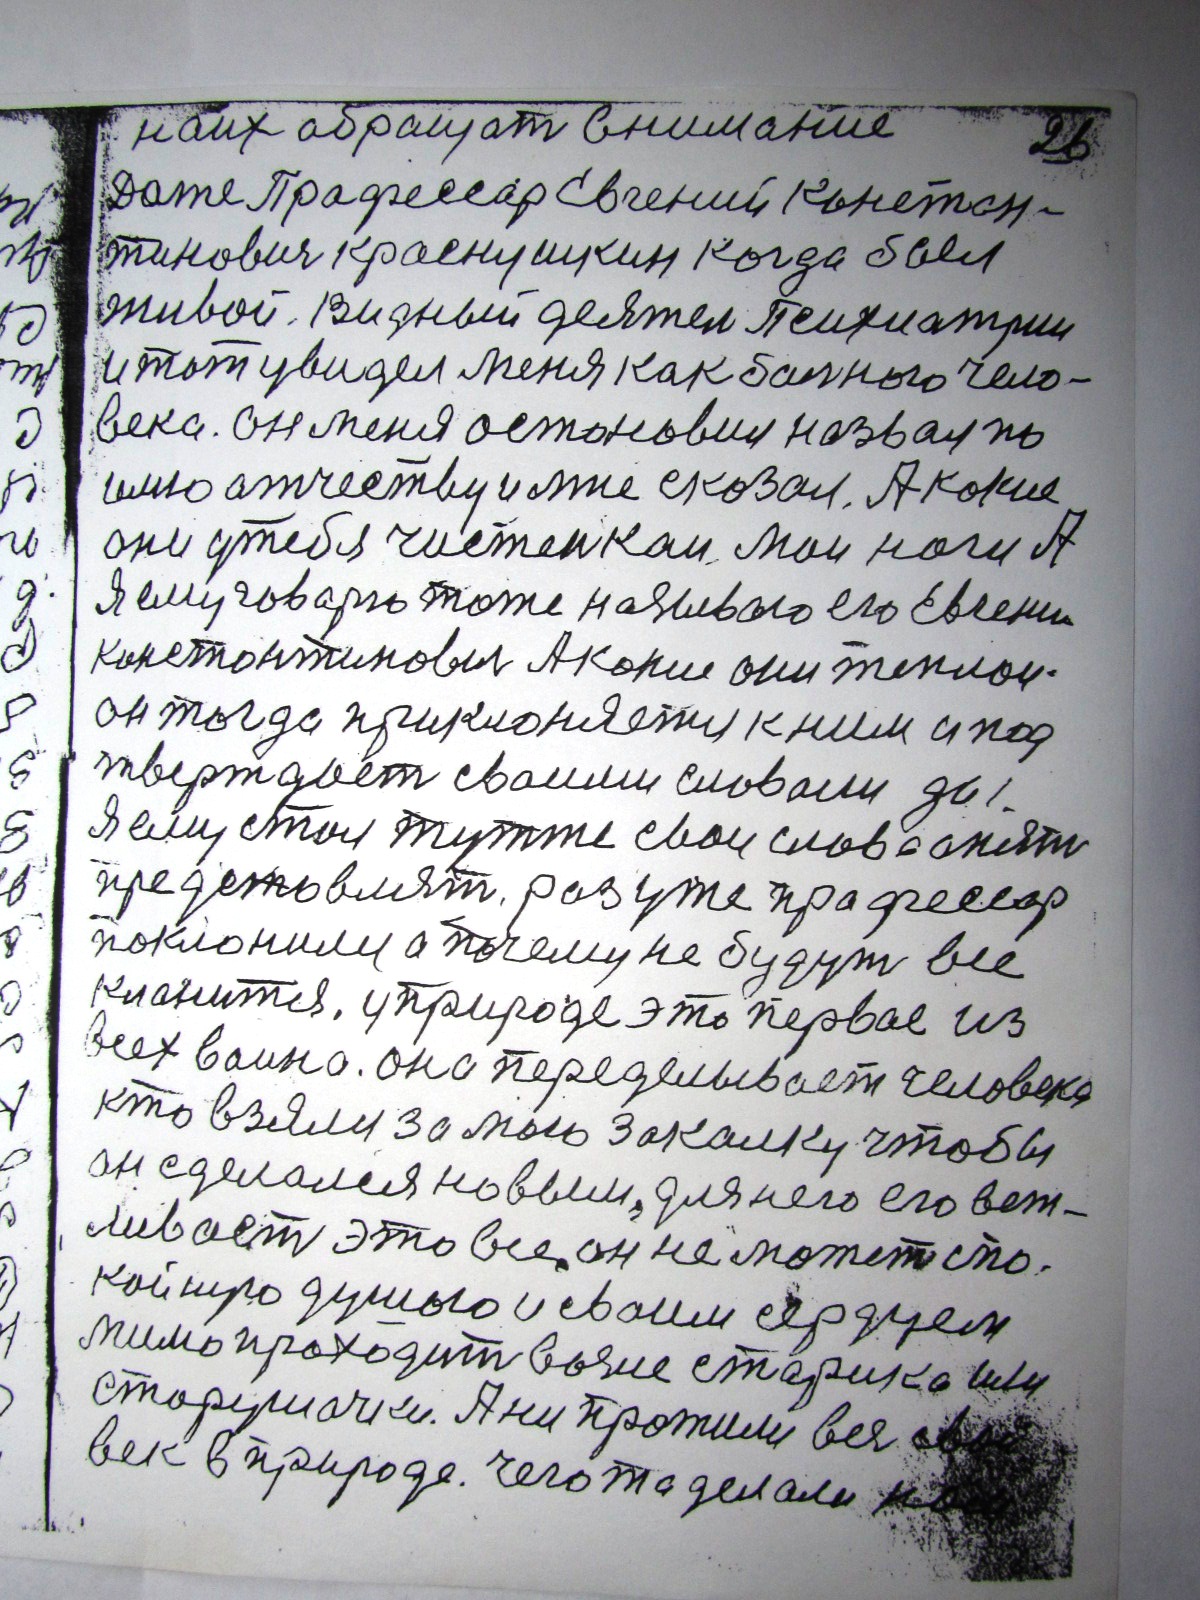 наих обращут внимание 26
Даже Прафессар Евгений Конетан-
тиновия краснушкин когда был
живой. Видный деятел Психиатрии
и тот увидел меня как балного чело-
века. он меня остоновил назвал по
имю атчеству и мне сказал. А какие
они у тебя чистенкаи. Мои ноги А
Я ему говарю тоже называю его Евгени
констонтиновия А какие они теплаи.
он тогда приклоняется к ним и под
тверждает сваими словами да!.
Я ему стал тутже сваи слова апят
предстовлят. раз уже прафессар
поклонилы а почему не будут все
кланится, у природе это первае из
всех ваина. она переделывает человека
кто взяли за мою закалку чтобы
он сделался новым, для него его вет-
ливает это все, он не может спо.
койнро душою и сваим сердцем
мимо праходит вызие старика или
старушачки. Ани прожили вся свой
век в природе. чегота делали